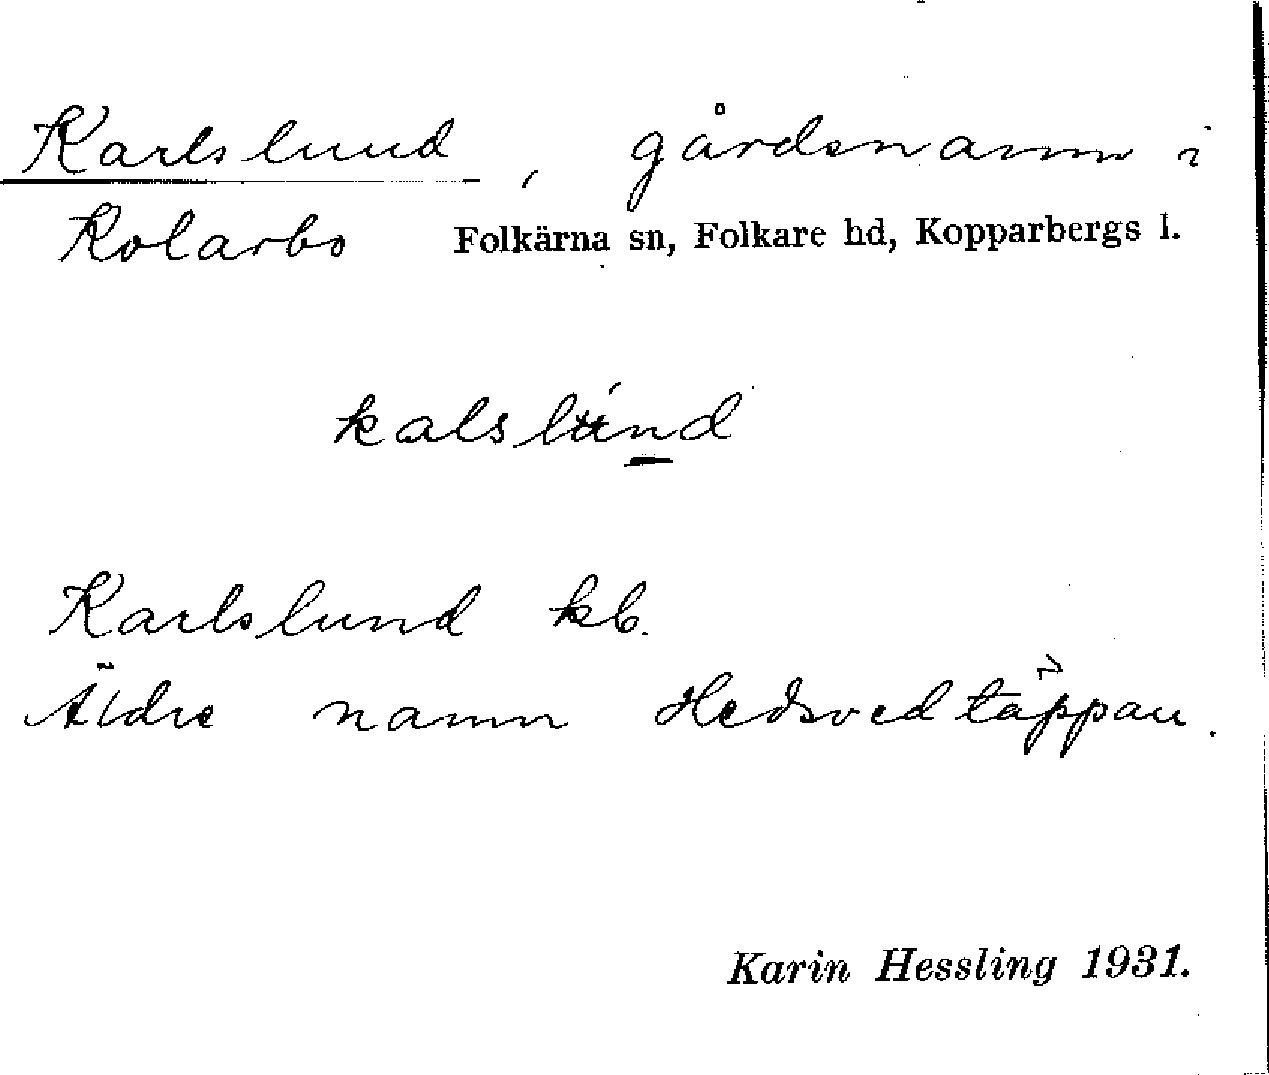 Karlslund, gårdsnamn i
Kolarbo Folkärna sn, Folkare hd, Kopparbergs l.
kalslund
Karlslund kb.
Äldre namn Hedsvedtäppan.
Karin Hessling 1931.